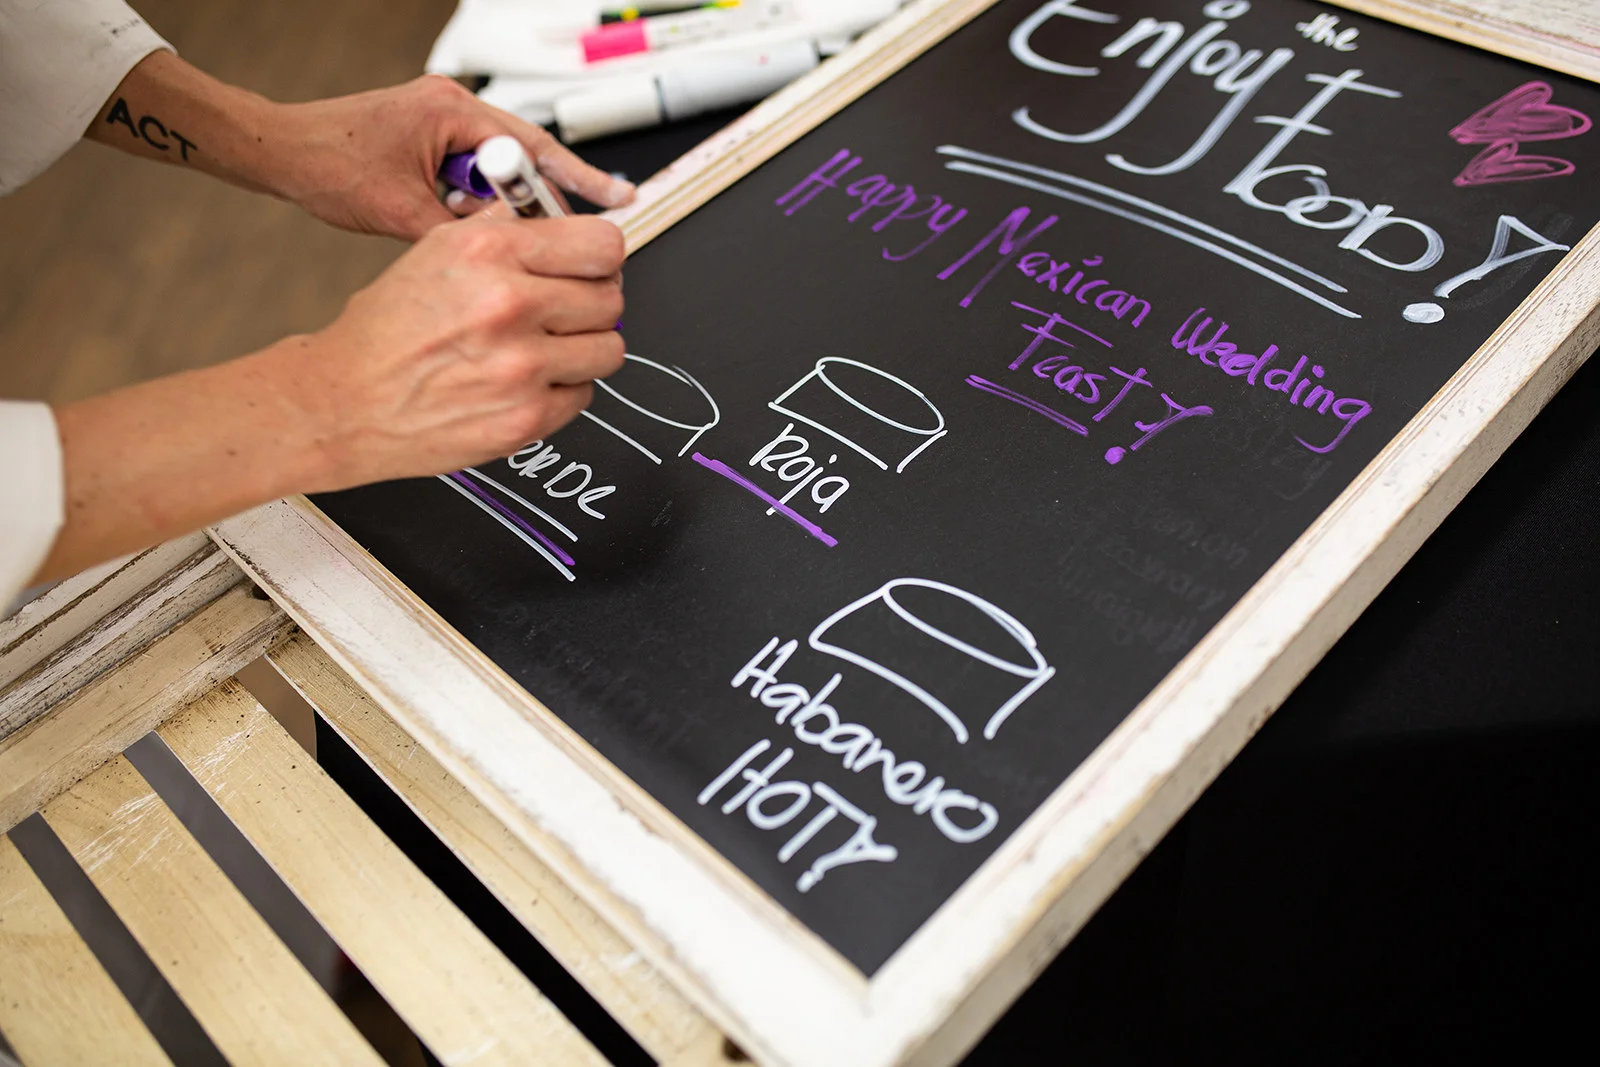 Enjoy the
Food!
Happy Mexican Wedding
Feast!
Roja
erde
Habanero
HOT!
ACT